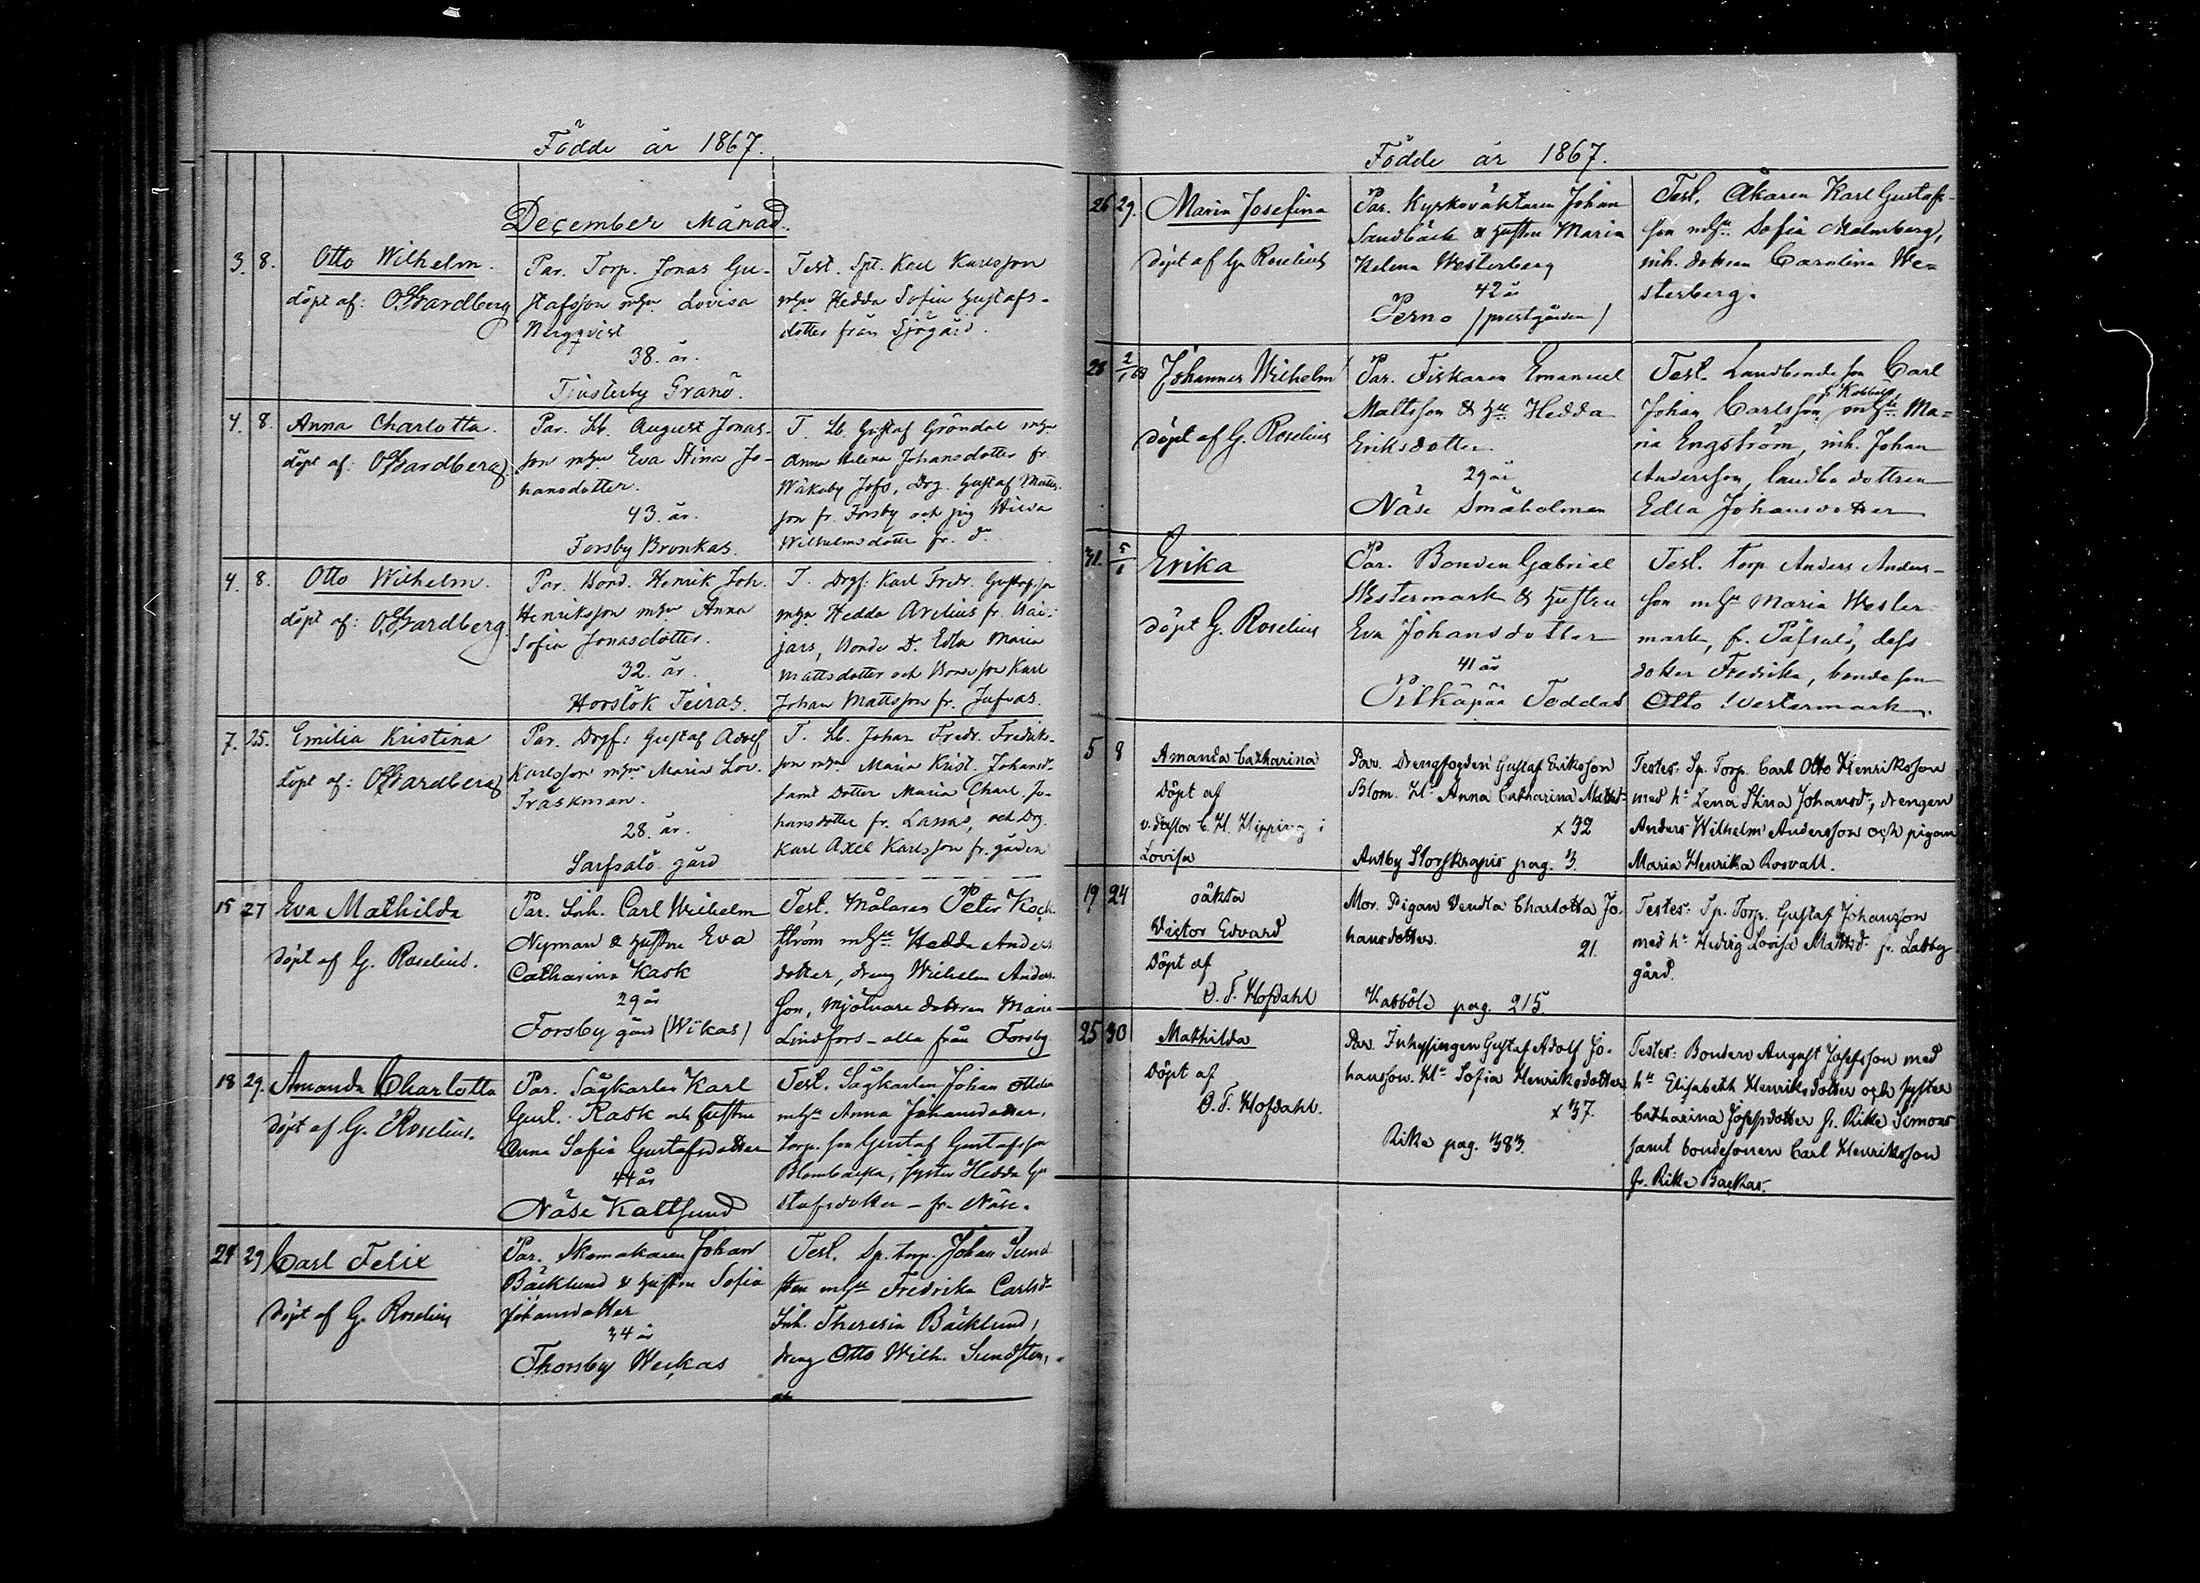 Födde år 1867.
December Månad.
3. 8. Otto Wilhelm.
döpt af: O. Gardberg
Par. Torp. Jonas Gu-
stafsson mhu Lovisa
Bergqvist
38. år.
Tjusterby Granö.
Test. Spt. Karl Karlsson
mhu Hedda Sofia Gustafs-
dotter från Sjögård.
4. 8. Anna Charlotta.
döpt af: O. Gardberg.
Par. Lb. August Jonas-
son mhu Eva Stina Jo-
hansdotter.
43. år.
Forsby Bronkas.
T. Lb. Gustaf Gröndal mhu
Anna Helena Johansdotter fr.
Wåkoby Jofs, Drg. Gustaf Matts-
son fr. Forsby och pig Hilda
Wilhelmsdotter fr. d:o
4. 8. Otto Wilhelm.
döpt af: O. Gardberg.
Par. Bond. Henrik Joh.
Henriksson mhu Anna
Sofia Jonasdotter.
32. år.
Horslök Teiras.
T. Drgf. Karl Fredr. Gustafsson
mhu Hedda Avelius fr.
jars, Bonde D. Edla Maria
Mattsdotter och Bondeson Karl
Johan Mattsson fr. Jufvas.
7. 25. Emilia Kristina
döpt af: O. Gardberg
Par. Drgf: Gustaf Adolf
Karlsson mhu Maria Lov.
Träskman.
28. år.
Sarfsalö gård
T. Lb. Johan Fredr. Fredriks-
son mhu Maria Krist. Johansd:r
samt dotter Maria Charl. Jo-
hansdotter fr. Lassas, och Drg.
Karl Axel Karlsson fr. gården
15 27 Eva Mathilda
döpt af G. Roselius.
Par. Inh. Carl Wilhelm
Nyman & hustru Eva
Catharina Kask
29 år
Forsby gård (Wikas)
Test. Målaren Peter Kock-
ström mhu Hedda Anders
dotter, dreng Wilhelm Anders-
son, mjölnare dottren Maria
Lindfors – alla från Forsby
18 29. Amanda Charlotta
döpt af G. Roselius.
Par. Sågkarlen Karl
Gust. Rask och hustru
Anna Sofia Gustafsdotter
44 år
Näse Kaltsund
Test. Sågkarlen Johan
mhu Anna Johansdotter,
torp. son Gustaf Gustafsson
Blombacka, syster Hedda Gu
stafsdotter – fr. Näse.
24 29 Carl Felix
döpt af G. Roselius
Par. Skomakaren Johan
Bäcklund & hustru Sofia
Johansdotter
34 år
Thorsby Weckas
Test. Sp. torp. Johan Sund
sten mhu Fredrika Carlsd:r
Inh. Theresia Bäcklund,
dreng Otto Wilh. Sundsten,
Födde år 1867.
26 29. Maria Josefina
döpt af G. Roselius
Par. Kyrkoväktaren Johan
Sandbäck & hustru Maria
Helena Westerberg
42 år
Perno (prestgården)
Test. Åkaren Karl Gustafs-
son mhu Sofia Malmberg,
inh. dottren Carolina We-
sterberg.
28 2/1 68 Johannes Wilhelm
döpt af G. Roselius
Par. Fiskaren Emanuel
Mattsson & hu Hedda
Eriksdotter
29 år
Näse Småholmen
Test. Landbonde son Carl
Johan Carlsson fr Kabböle, mhu Ma-
ria Engström, inh. Johan
Andersson, landbo dottren
Edla Johansdotter
31. 5/1 Erika
döpt G. Roselius
Par. Bonden Gabriel
Westermark & hustru
Eva Johansdotter
41 år
Pitkäpää Toddas
Test. Torp Anders Anders-
son mhu Maria Wester-
mark, fr. Påfsalö, dess
dotter Fredrika, bonde son
Otto Westermark.
5 8 Amanda Catharina
Döpt af
v. Pastor C. H. Hipping i
Lovisa
Par. Drengfogden Gustaf Eriksson
Blom. H:u Anna Catharina Mattsd:r
x 32
Antby Storskrapis pag. 3.
Testes: Sp. Torp. Carl Otto Henriksson
med h:u Lena Stina Johansd:r, drengen
Anders Wilhelm Andersson och pigan
Maria Henrika Rosvall.
19 24 oäkta
Victor Edvard
Döpt af
O. T. Hofdahl
Mor. Pigan Vendla Charlotta Jo-
hansdotter.
21.
Kabböle pag. 215.
Testes: Sp. Torp. Gustaf Johansson
med h:u Hedvig Lovisa Mattsd:r fr. Labby
gård.
25 30 Mathilda
Döpt af
O. T. Hofdahl.
Par. Inhysingen Gustaf Adolf Jo-
hansson. H:u Sofia Henriksdotter
x 37.
Rike pag. 383.
Testes: Bonden August Josefsson med
h:u Elisabeth Henriksdotter och syster
Catharina Josefsdotter fr. Rike Simons
samt bondesonen Carl Henriksson
fr. Rike Backas.